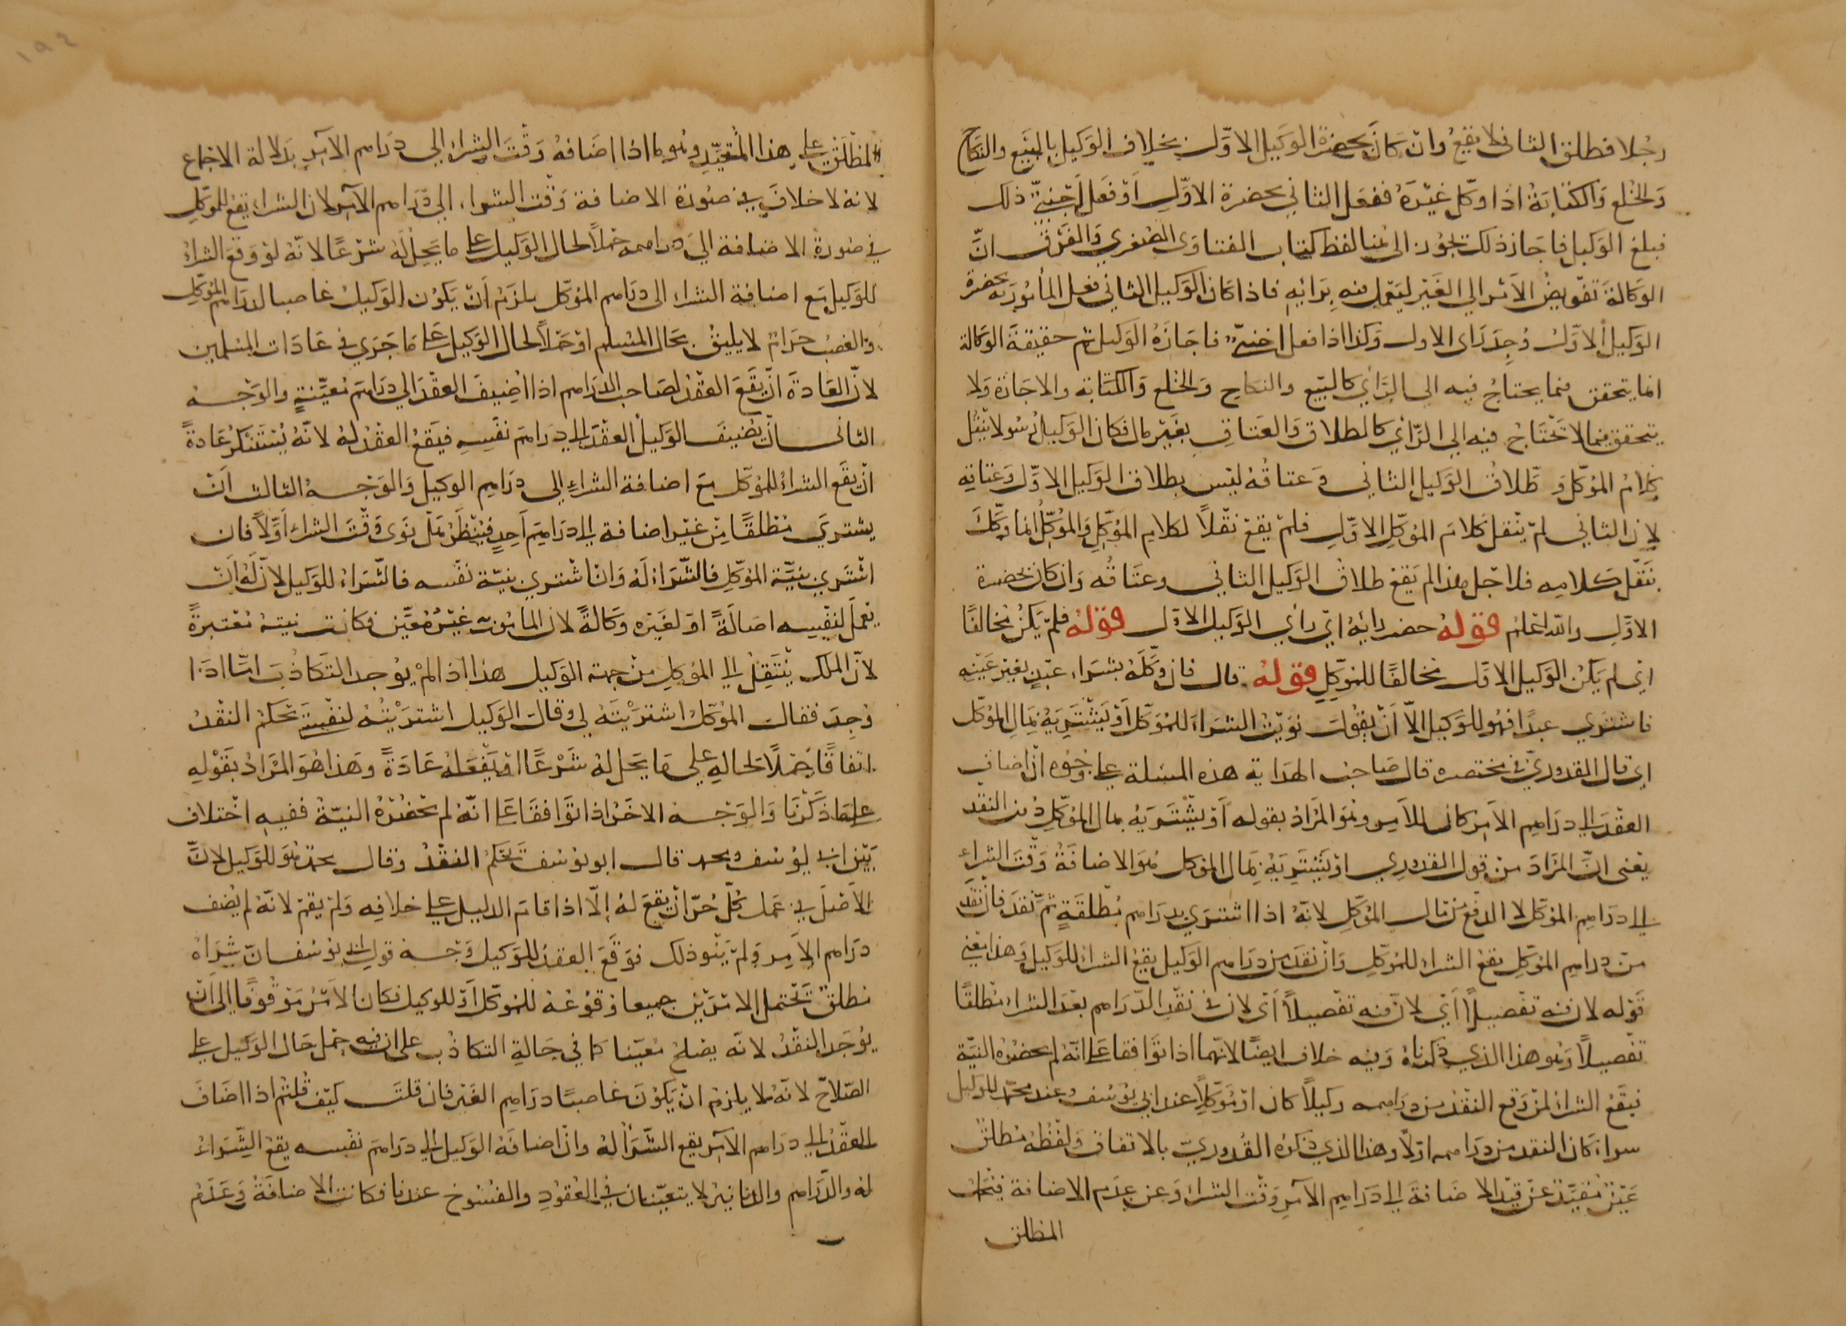 رجلا فطلق الثاني لا يقع وان كان بحضرة الوكيل الاول بخلاف الوكيل بالبيع والنكاح
والخلع والكتابة اذا وكل غيره ففعل الثاني بحضرة الاول او فعل اجنبي ذلك
فبلغ الوكيل فاجاز ذلك يجوز الى هنا لفظ كتاب الفتاوى الصغرى والفرق ان
الوكالة تفويض الامر الى الغير ليعمل فيه برايه فاذا كان الوكيل الثاني فعل المأمور به بحضرة
الوكيل الاول وجد راى الاول وكذا اذا فعل اجنبي فاجازه الوكيل ثم حقيقة الوكالة
انما يتحقق فيما يحتاج فيه الى الراي كالبيع والنكاح والخلع والكتابة والاجازة ولا
يتحقق فيما لا تحتاج فيه الى الراي كالطلاق والعتاق بغير مال فكان الوكيل رسولا ينقل
كلام الموكل وطلاق الوكيل الثاني وعتاقه ليس بطلاق الوكيل الاول وعتاقه
لان الثاني لم ينقل كلام الموكل الاول فلم يقع نقلا لكلام الموكل والموكل انما وكل
بنقل كلامه فلاجل هذا لم يقع طلاق الوكيل الثاني وعتاقه وان كان بحضرة
الاول والله اعلم قوله حضر رايه اي رأي الوكيل الاول قوله فلم يكن مخالفا
اي لم يكن الوكيل الاول مخالفا للموكل قوله قال فان وكله بشراء عبد بغير عينه
فاشترى عبدا فهو للوكيل الا ان يقول نويت الشراء للموكل او يشتريه بمال الموكل
اي قال القدوري في مختصره قال صاحب الهداية هذه المسئلة على وجوه ان اضاف
العقد الى دراهم الامر كان للامر وهو المراد بقوله او يشتريه بمال الموكل دون النقد
يعني ان المراد من قول القدوري او يشتريه بمال الموكل هو الاضافة وقت الشراء
الى دراهم الموكل لا الدفع من مال الموكل لانه اذا اشترى بدراهم مطلقة ثم نقد فان نقد
من دراهم الموكل يقع الشراء للموكل وان نقد من دراهم الوكيل يقع الشراء للوكيل وهذا يعني
قوله لان فيه تفصيلا اي لان فيه تفصيلا اي لان في نقد الدراهم بعد الشراء مطلقا
تفصيلا وهو هذا الذي ذكرناه وفيه خلاف ايضا لانهما اذا توافقا على انه لم يحضره النية
فيقع الشراء لمن وقع النقد من دراهمه وكيلا كان او موكلا عند ابي يوسف وعند محمد للوكيل
سواء كان النقد من دراهمه اولا وهذا الذي ذكره القدوري بالاتفاق ولفظه مطلق
غير مقيد عن قيد الاضافة الى دراهم الامر وقت الشراء وعن عدم الاضافة فيحمل
المطلق
المطلق على هذا المقيد وهو ما اذا اضافه وقت الشراء الى دراهم الآمر بدلالة الاجماع
لانه لا خلاف في صورة الاضافة وقت الشراء الى دراهم الآمر لان الشراء يقع للموكل
في صورة الاضافة الى دراهمه حملا لحال الوكيل على ما يحل له شرعا لانه لو وقع الشراء
للوكيل مع اضافة الشراء الى دراهم الموكل يلزم ان يكون الوكيل غاصبا لدراهم الموكل
والغصب حرام لا يليق بحال المسلم او حملا لحال الوكيل على ما جرى في عادات المسلمين
لان العادة ان يقع العقد لصاحب الدراهم اذا اضيف العقد الى دراهم معينة والوجه
الثاني ان يضيف الوكيل العقد الى دراهم نفسه فيقع العقد له لانه يستنكر عادة
ان يقع الشراء للموكل مع اضافة الشراء الى دراهم الوكيل والوجه الثالث ان
يشتري مطلقا من غير اضافة الى دراهم احد فينظر هل نوى وقت الشراء اولا فان
اشترى بنية الموكل فالشراء له وان اشترى بنية نفسه فالشراء للوكيل لان له ان
يعمل لنفسه اصالة او لغيره وكالة لان المأمور به غير معين فكانت نيته معتبرة
لان الملك ينتقل الى الموكل من جهة الوكيل هذا اذا لم يوجد التكاذب اما اذا
وجد فقال الموكل اشتريته لي وقال الوكيل اشتريته لنفسي تحكم النقد
اتفاقا حملا لحاله على ما يحل له شرعا او يفعله عادة وهذا هو المراد بقوله
على ما ذكرنا والوجه الاخر اذا توافقا على انه لم تحضره النية ففيه اختلاف
بين ابي يوسف ومحمد قال ابو يوسف تحكم النقد وقال محمد هو للوكيل لان
الاصل في عمل كل حر ان يقع له الا اذا قام الدليل على خلافه ولم يقم لانه لم يضف
دراهم الامر ولم ينو ذلك فوقع العقد للوكيل وجه قول ابي يوسف ان شراه
مطلق تحتمل الامرين جميعا وقوعه للموكل او للوكيل فكان الامر موقوفا الى ان
يوجد النقد لانه يصلح معينا كما في حالة التكاذب على ان فيه حمل حال الوكيل على
الصلاح لانه لا يلزم ان يكون غاصبا دراهم الغير فان قلت كيف قلتم اذا اضاف
العقد الى دراهم الآمر يقع الشراء له وان اضافه الوكيل الى دراهم نفسه يقع الشراء
له والدراهم والدنانير لا يتعينان في العقود والفسوخ عندنا فكانت الاضافة وعدم